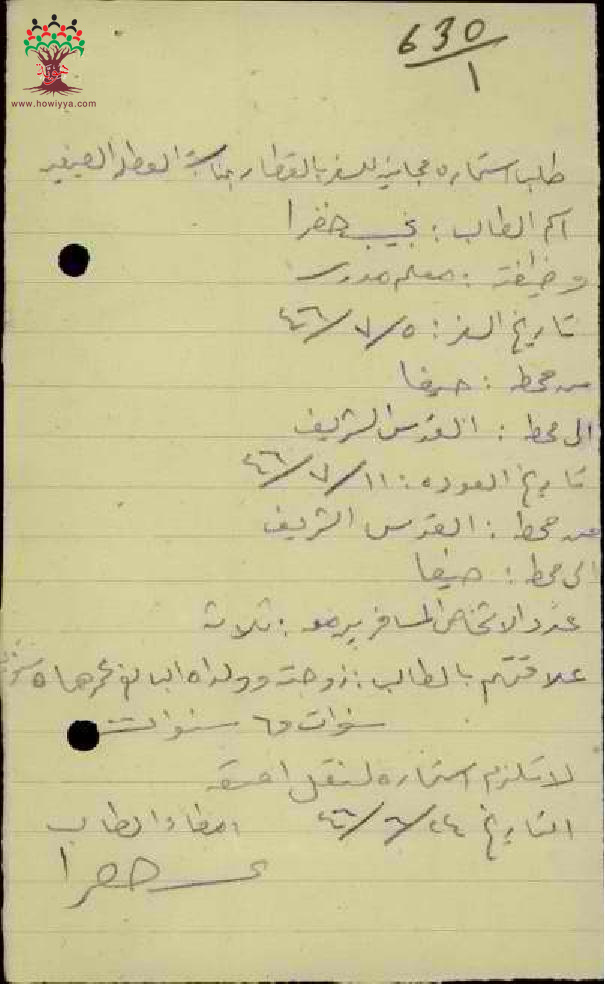 www.howiyya.com
630/1
طلب استماره مجانيه للسفر بالقطار بمناسبة العطله الصيفيه
اسم الطالب : نجيب خضرا
وظيفته : معلم مدرسه
تاريخ السفر : ٤٦/٧/٥
من محطة : حيفا
الى محطة : القدس الشريف
تاريخ العوده : ٤٦/٧/١١
من محطة : القدس الشريف
الى محطة : حيفا
عدد الاشخاص المسافرين معه : ثلاثه
علاقتهم بالطالب : زوجته وولداه البالغ عمرهما ٥
سنوات و٦ سنوات
لا تلزم استماره لنقل امتعه
التاريخ ٤٦/٦/٢٤ امضاء الطالب
خضرا